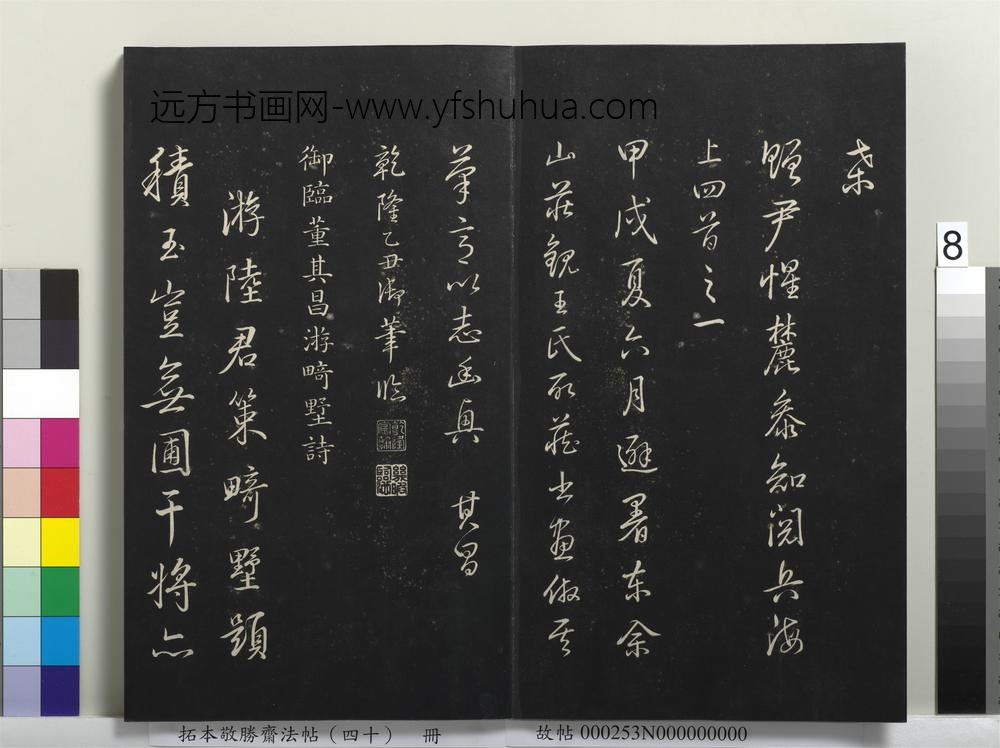 远方书画网-www.yfshuhua.com
贈尹惺麓參知閱兵海
上四首之一
甲戌夏六月避暑東佘
山莊觀王氏所藏書畫倣其
筆意以志幽興 其昌
乾隆乙丑御筆臨
御臨董其昌游畸墅詩
游陸君策畸墅題
積玉豈無圃干將亦
8
拓本敬勝齋法帖（四十） 冊
故帖 000253N000000000